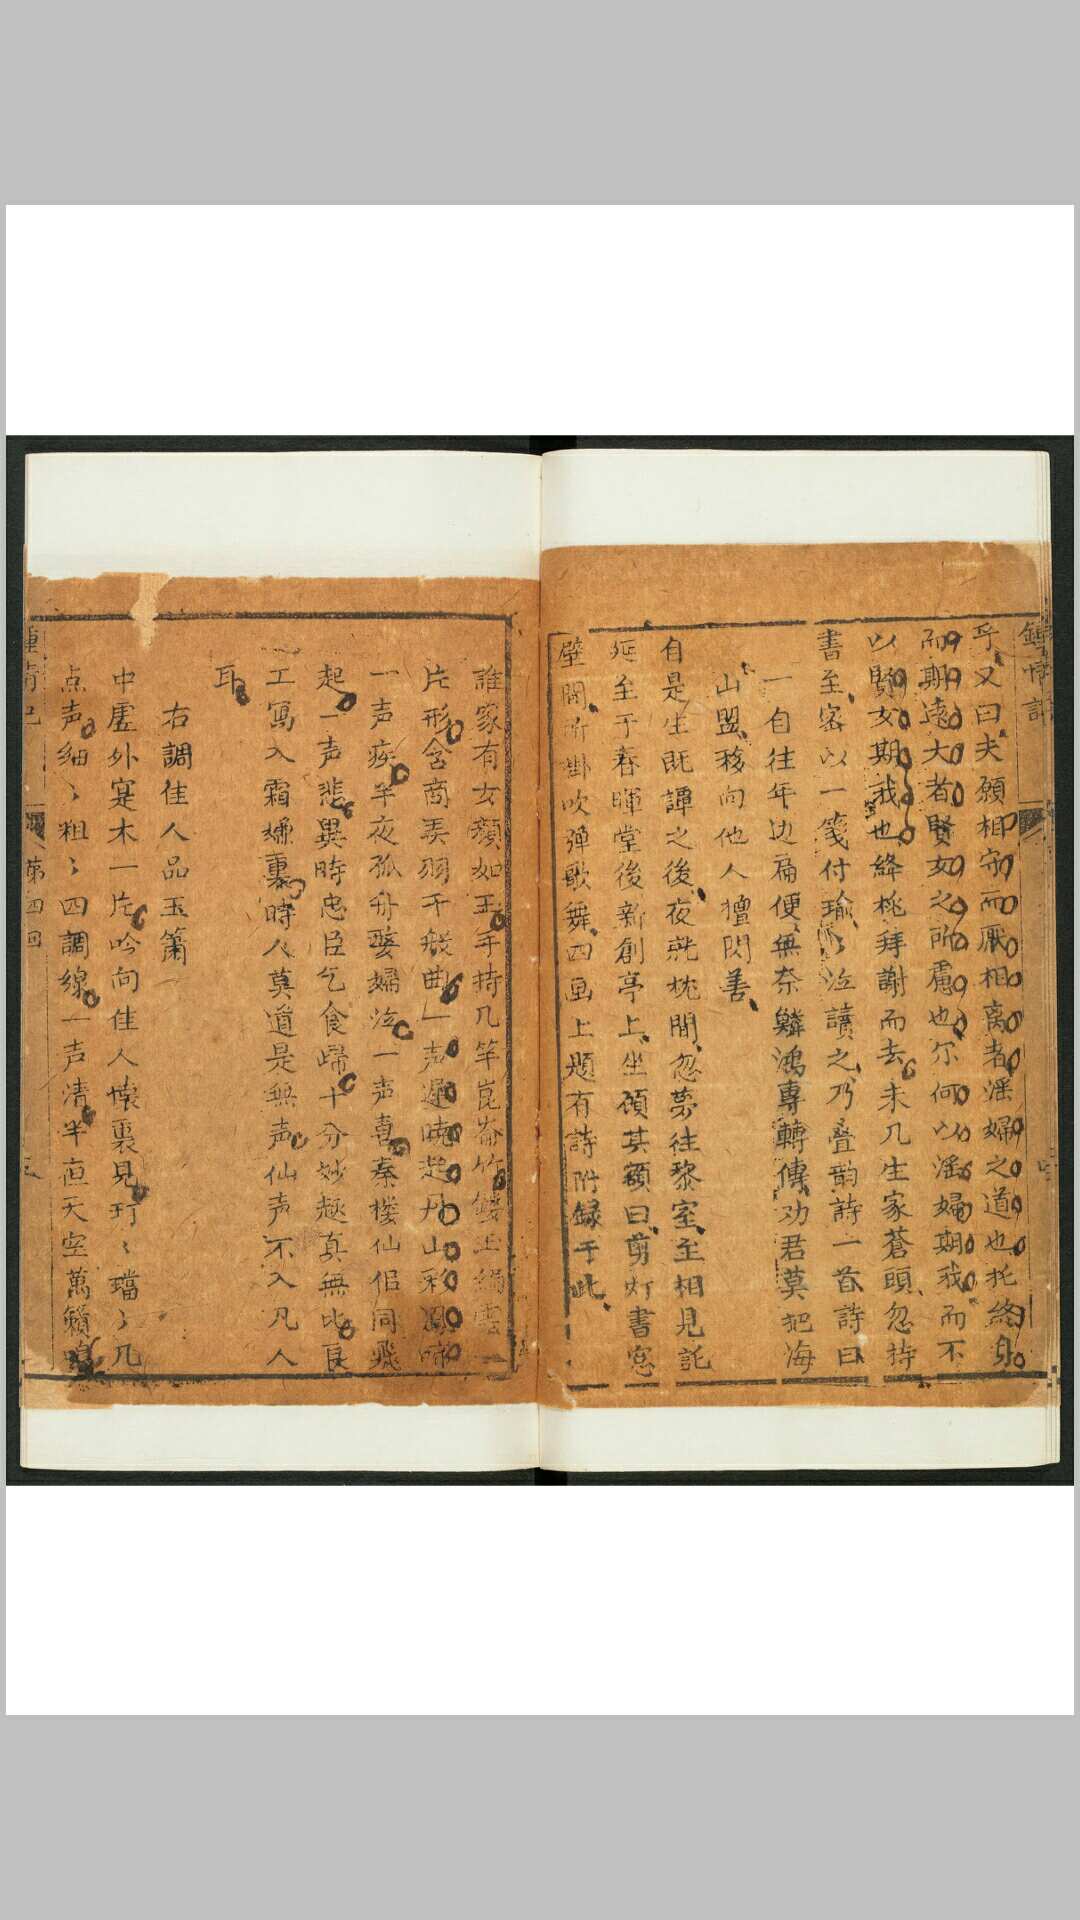 鍾情記
乎又曰夫願相守而厭相离者滛婦之道也托終身
而期遠大者賢女之所慮也尔何以滛婦期我而不
以賢女期我也絳桃拜謝而去未几生家蒼頭忽持
書至宻以一箋付瑜〻泣讀之乃疊韵詩一首詩曰
一自往年边扁便無奈鱗鴻專轉傳劝君莫把海
山盟移向他人擅閃善
自是生既譚之後夜就枕間忽夢往黎室至相見託
延至于春暉堂後新創亭上坐頃其額曰剪灯書窓
壁間所掛吹弹歌舞四画上题有詩附録于此
誰家有女顏如玉手持几竿崑崙竹
片形含商弄羽千般曲一声遲暁起丹山彩鳳啼
一声疾半夜孤舟嫠婦泣一声喜秦楼仙侣同飛
起一声悲異時忠臣乞食歸十分妙趣真無比良
工寫入霜縑裏時人莫道是無声仙声不入凡人
耳
右調佳人品玉簫
中虚外寔木一片吟向佳人懐裏見玎〻璫〻几
点声细〻粗〻四調線一声清半直天空萬籟鳴
鍾情記
第四回